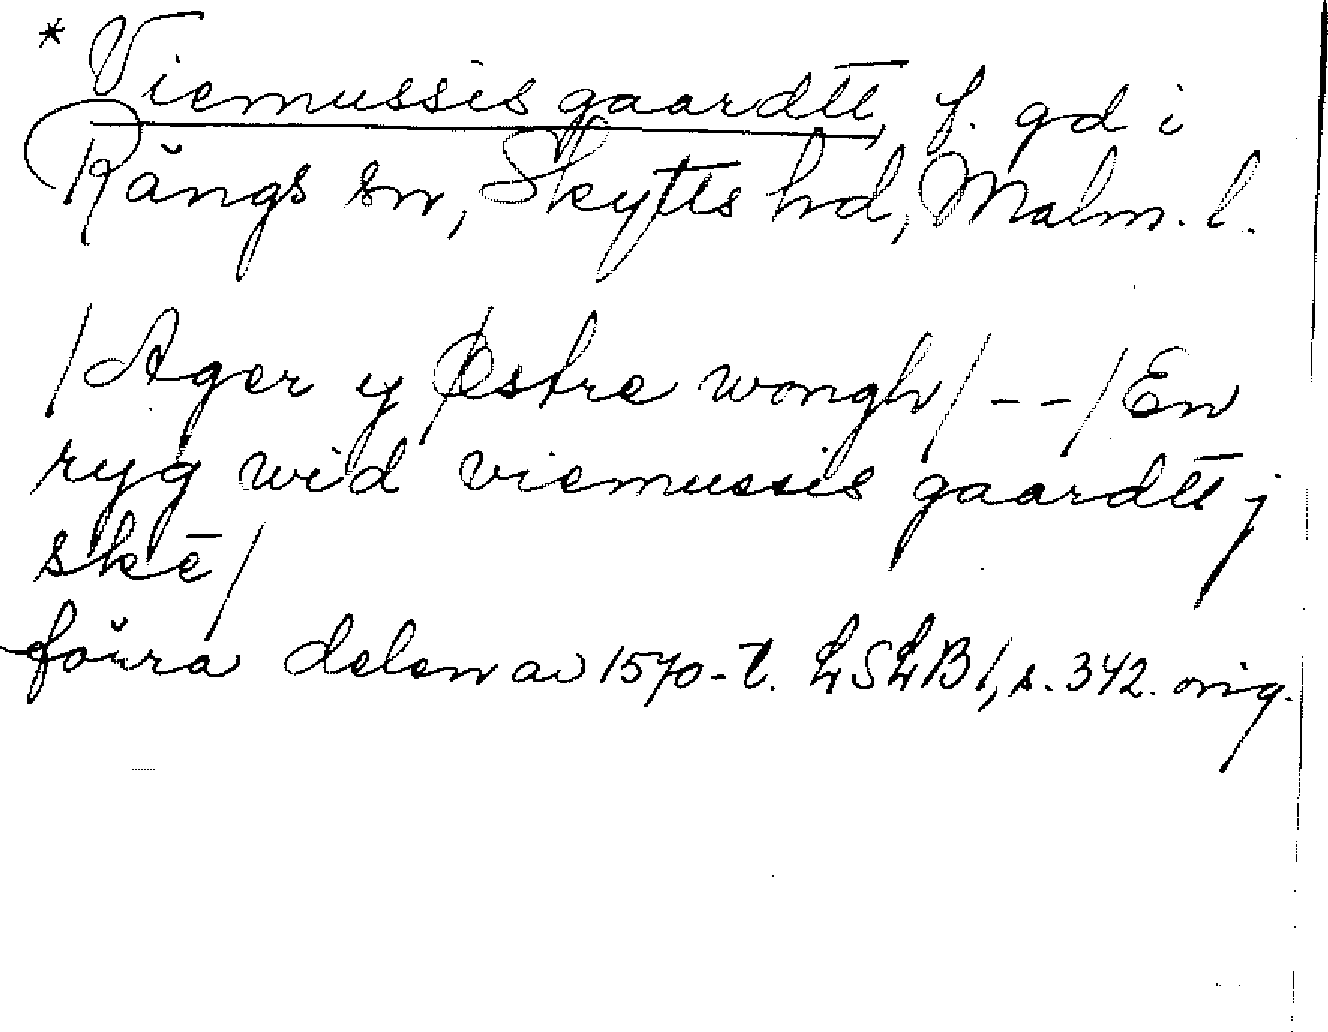 * Viemussis gaardtt, f. gd i
Rängs sn, Skytts hd, Malm. l.
/Ager y Østre wongh/--/En
ryg wid viemussis gaardtt j
skē/
förra delen av 1570-t. LSLB 1, s. 342. orig.